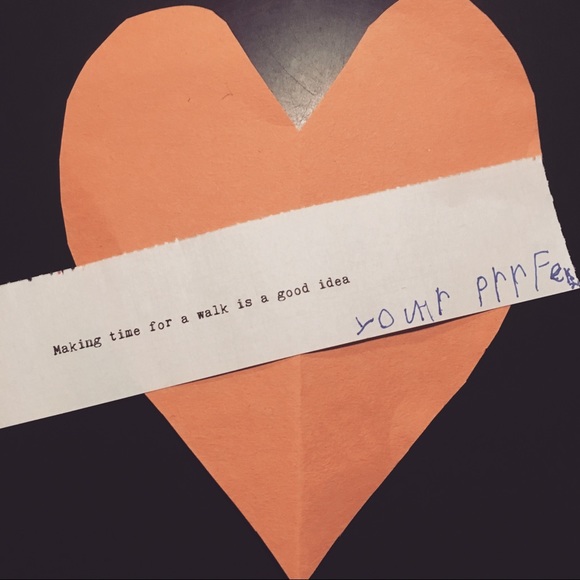 Making time for a walk is a good idea
your